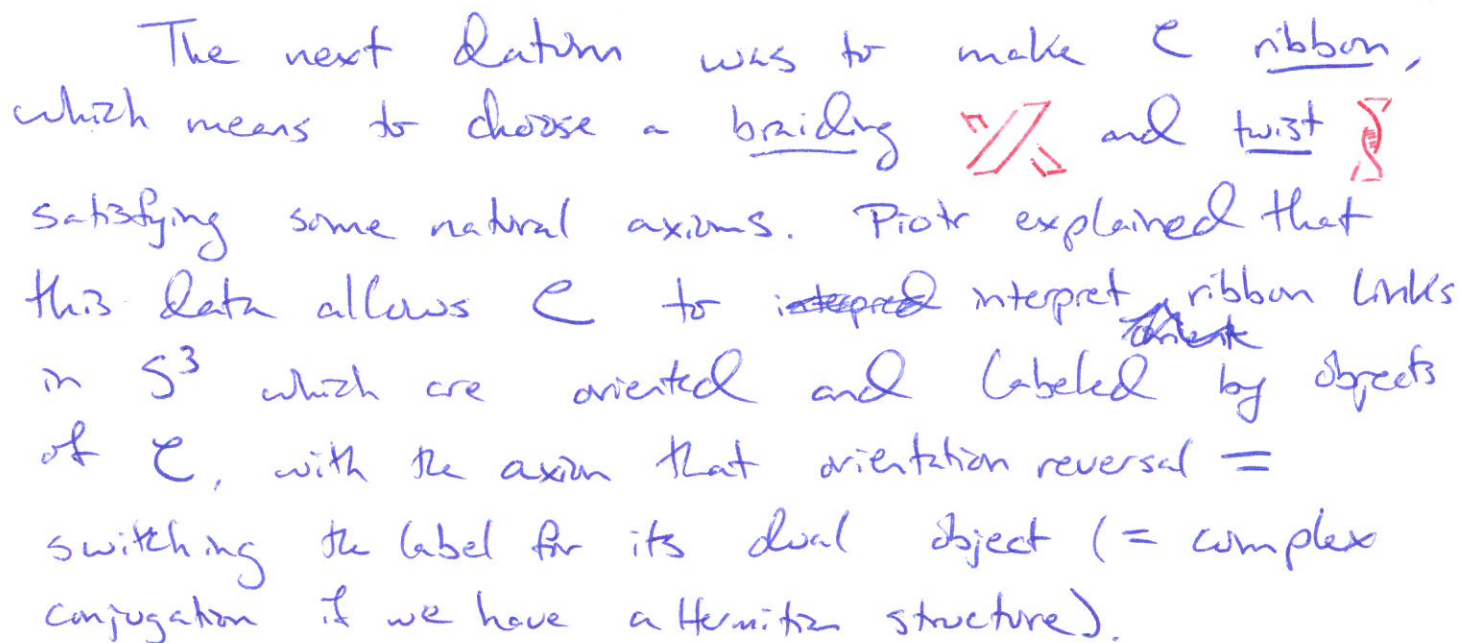 The next datum was to make C ribbon,
which means to choose a braiding and twist
satisfying some natural axioms. Piotr explained that
this data allows C to interpret ribbon links
in S³ which are oriented and labeled by objects
of C, with the axiom that orientation reversal =
switching the label for its dual object (= complex
conjugation if we have a Hermitian structure).